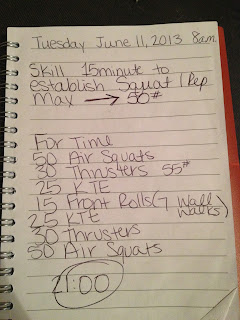 Tuesday June 11, 2013 8am
Skill 15minute to
establish Squat 1 Rep
Max → 50#
For Time
50 Air Squats
30 Thrusters 55#
25 KTE
15 Front Rolls (7 Wall
Walks)
25 KTE
30 Thrusters
50 Air Squats
21:00